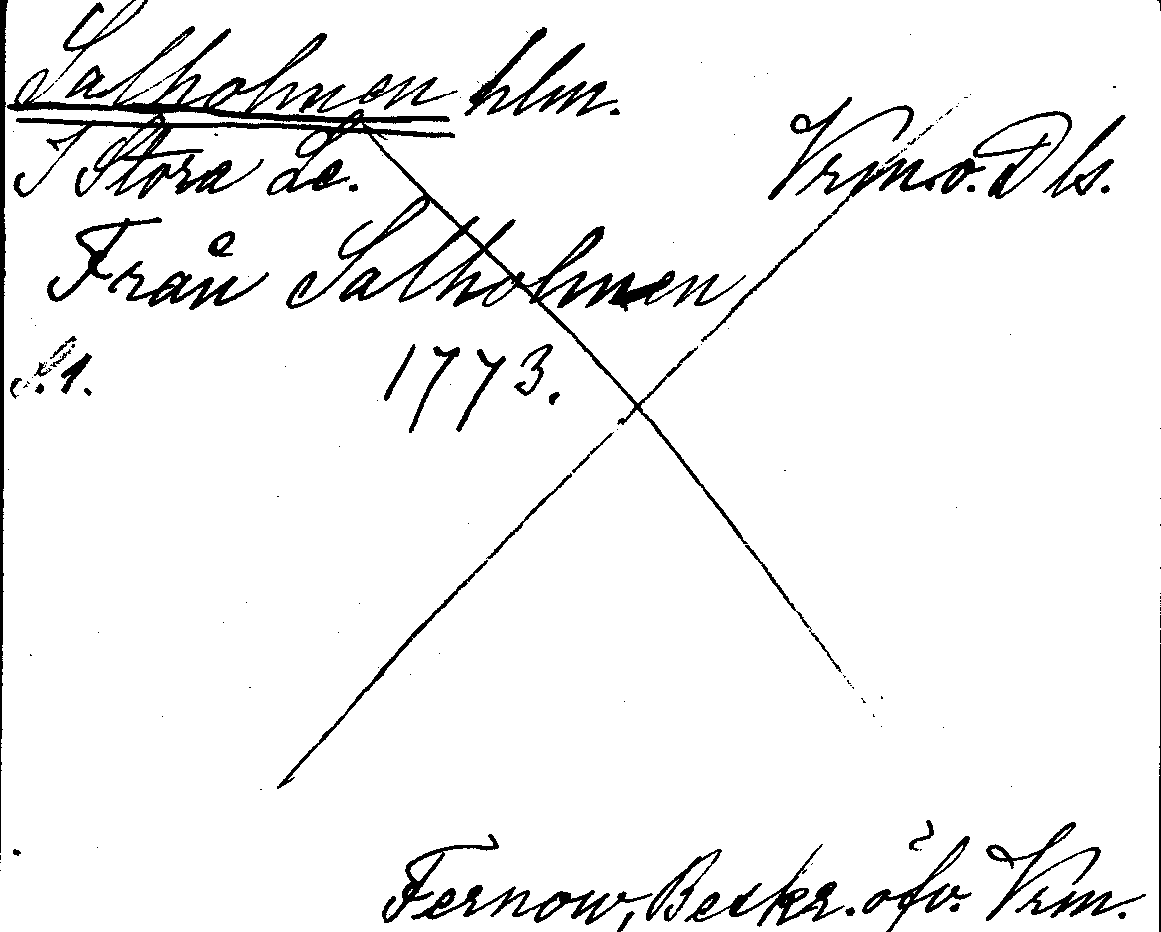 Salholmen hlm.
I Stora Le. Vrm.o.Dls.
Från Salholmen
S.1. 1773.
Fernow, Beskr. öfv. Vrm.